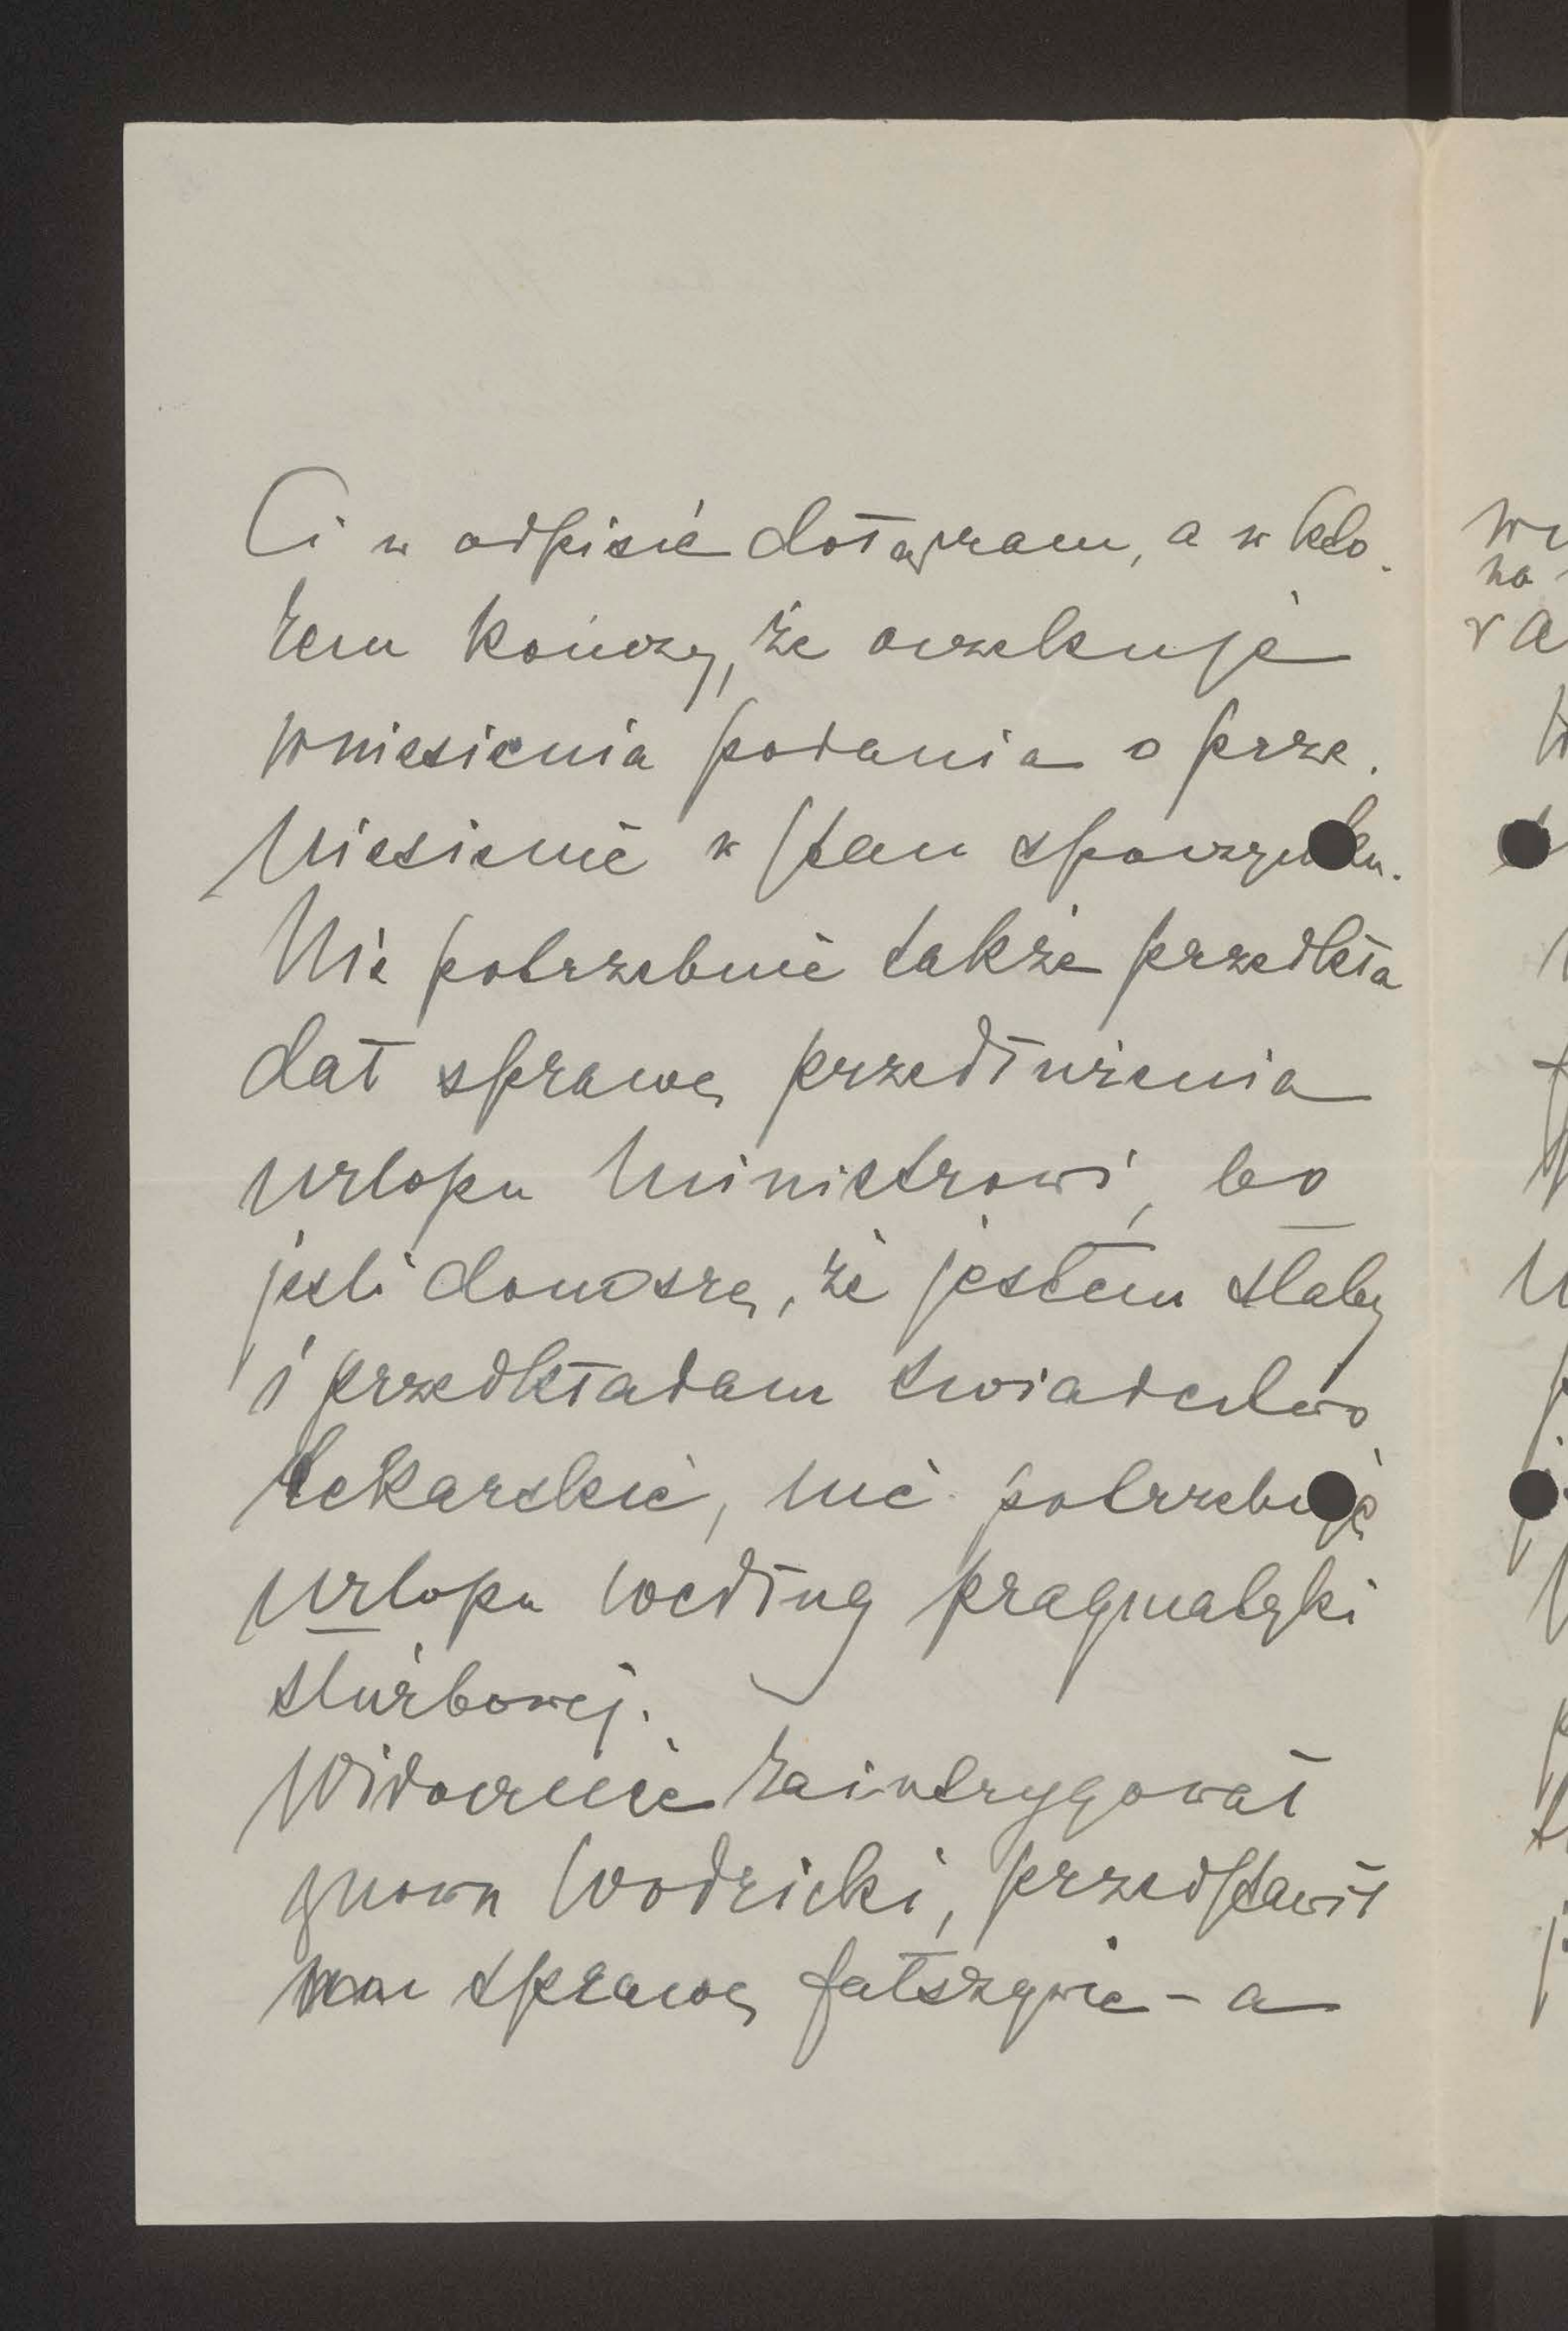 Ci w odpisie dołączam, a w któ-
rem kończy, że oczekuje
wniesienia podania o prze-
niesienie w stan spoczynku.
Nie potrzebnie także przedkła
dał sprawę przedłużenia
urlopu Ministrowi, bo
jeśli donoszę, że jestem słaby
i przedkładam świadectwo
lekarskie, nie potrzebuję
urlopu według pragmatyki
służbowej.
Widocznie zaintrygował
znowu Wodzicki, przedstawił
mu sprawę fałszywie - a